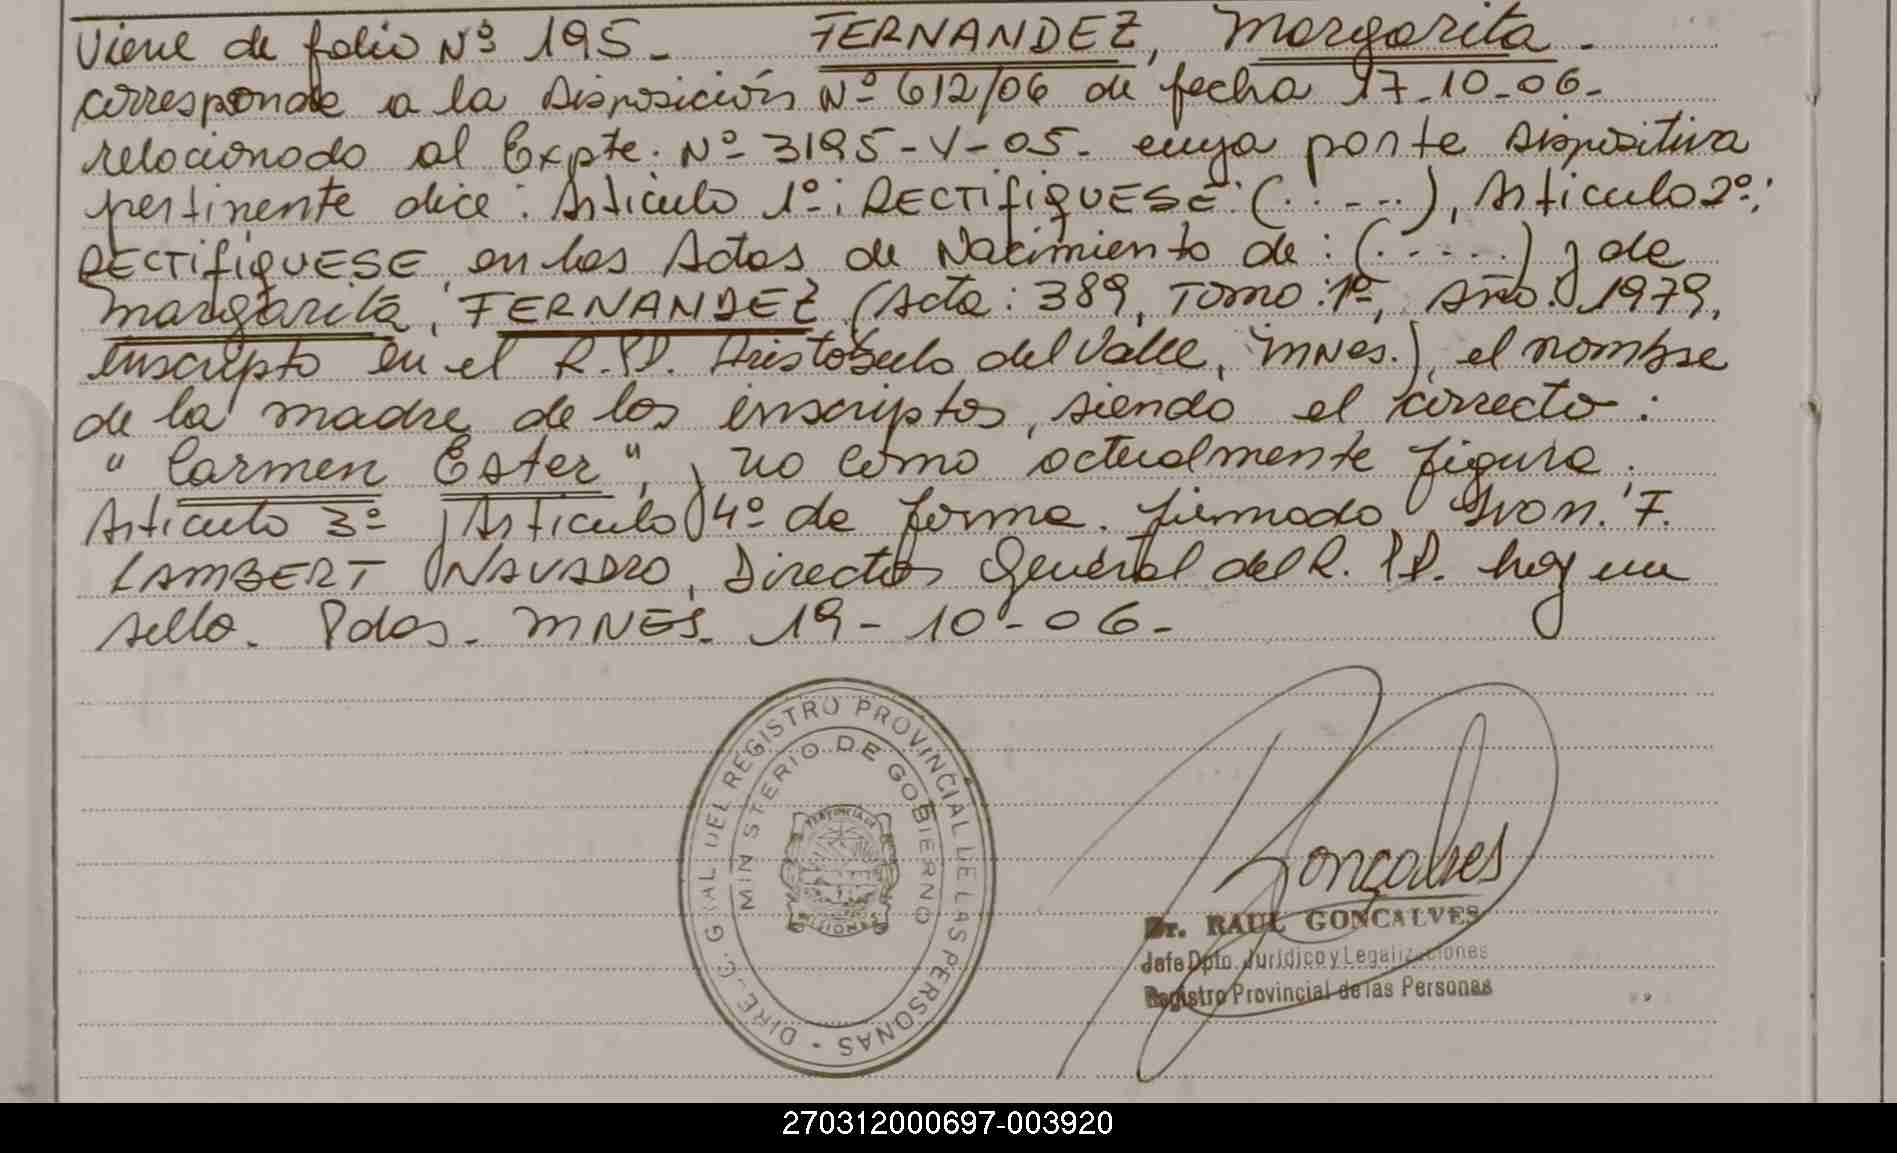 Viene de folio Nº 195- FERNANDEZ, Margarita.-
corresponde a la Disposición Nº 612/06 de fecha 17-10-06-
relacionado al Expte. Nº 3195-V-05- cuya parte dispositiva
pertinente dice: Artículo 1º: RECTIFIQUESE: (.....), Artículo 2º:
RECTIFIQUESE en las Actas de Nacimiento de: (.....) y de
Margarita, FERNANDEZ (Acta: 389, Tomo: 1º, Año: 1979,
inscripto en el R.P.P. Aristóbulo del Valle, MNes.), el nombre
de la madre de los inscriptos, siendo el correcto:
"Carmen Ester", y no como actualmente figura.
Artículo 3º y Artículo 4º de forma. firmado Ivon. F.
LAMBERT NAVARRO, Director General del R.P.P. hay un
sello. Pdas. MNES. 19-10-06-
DIREC. GRAL DEL REGISTRO PROVINCIAL DE LAS PERSONAS -
MINISTERIO DE GOBIERNO
PROVINCIA DE
MISIONES
Gonçalves
Dr. RAUL GONCALVES
Jefe Dpto. Jurídico y Legalizaciones
Registro Provincial de las Personas
270312000697-003920